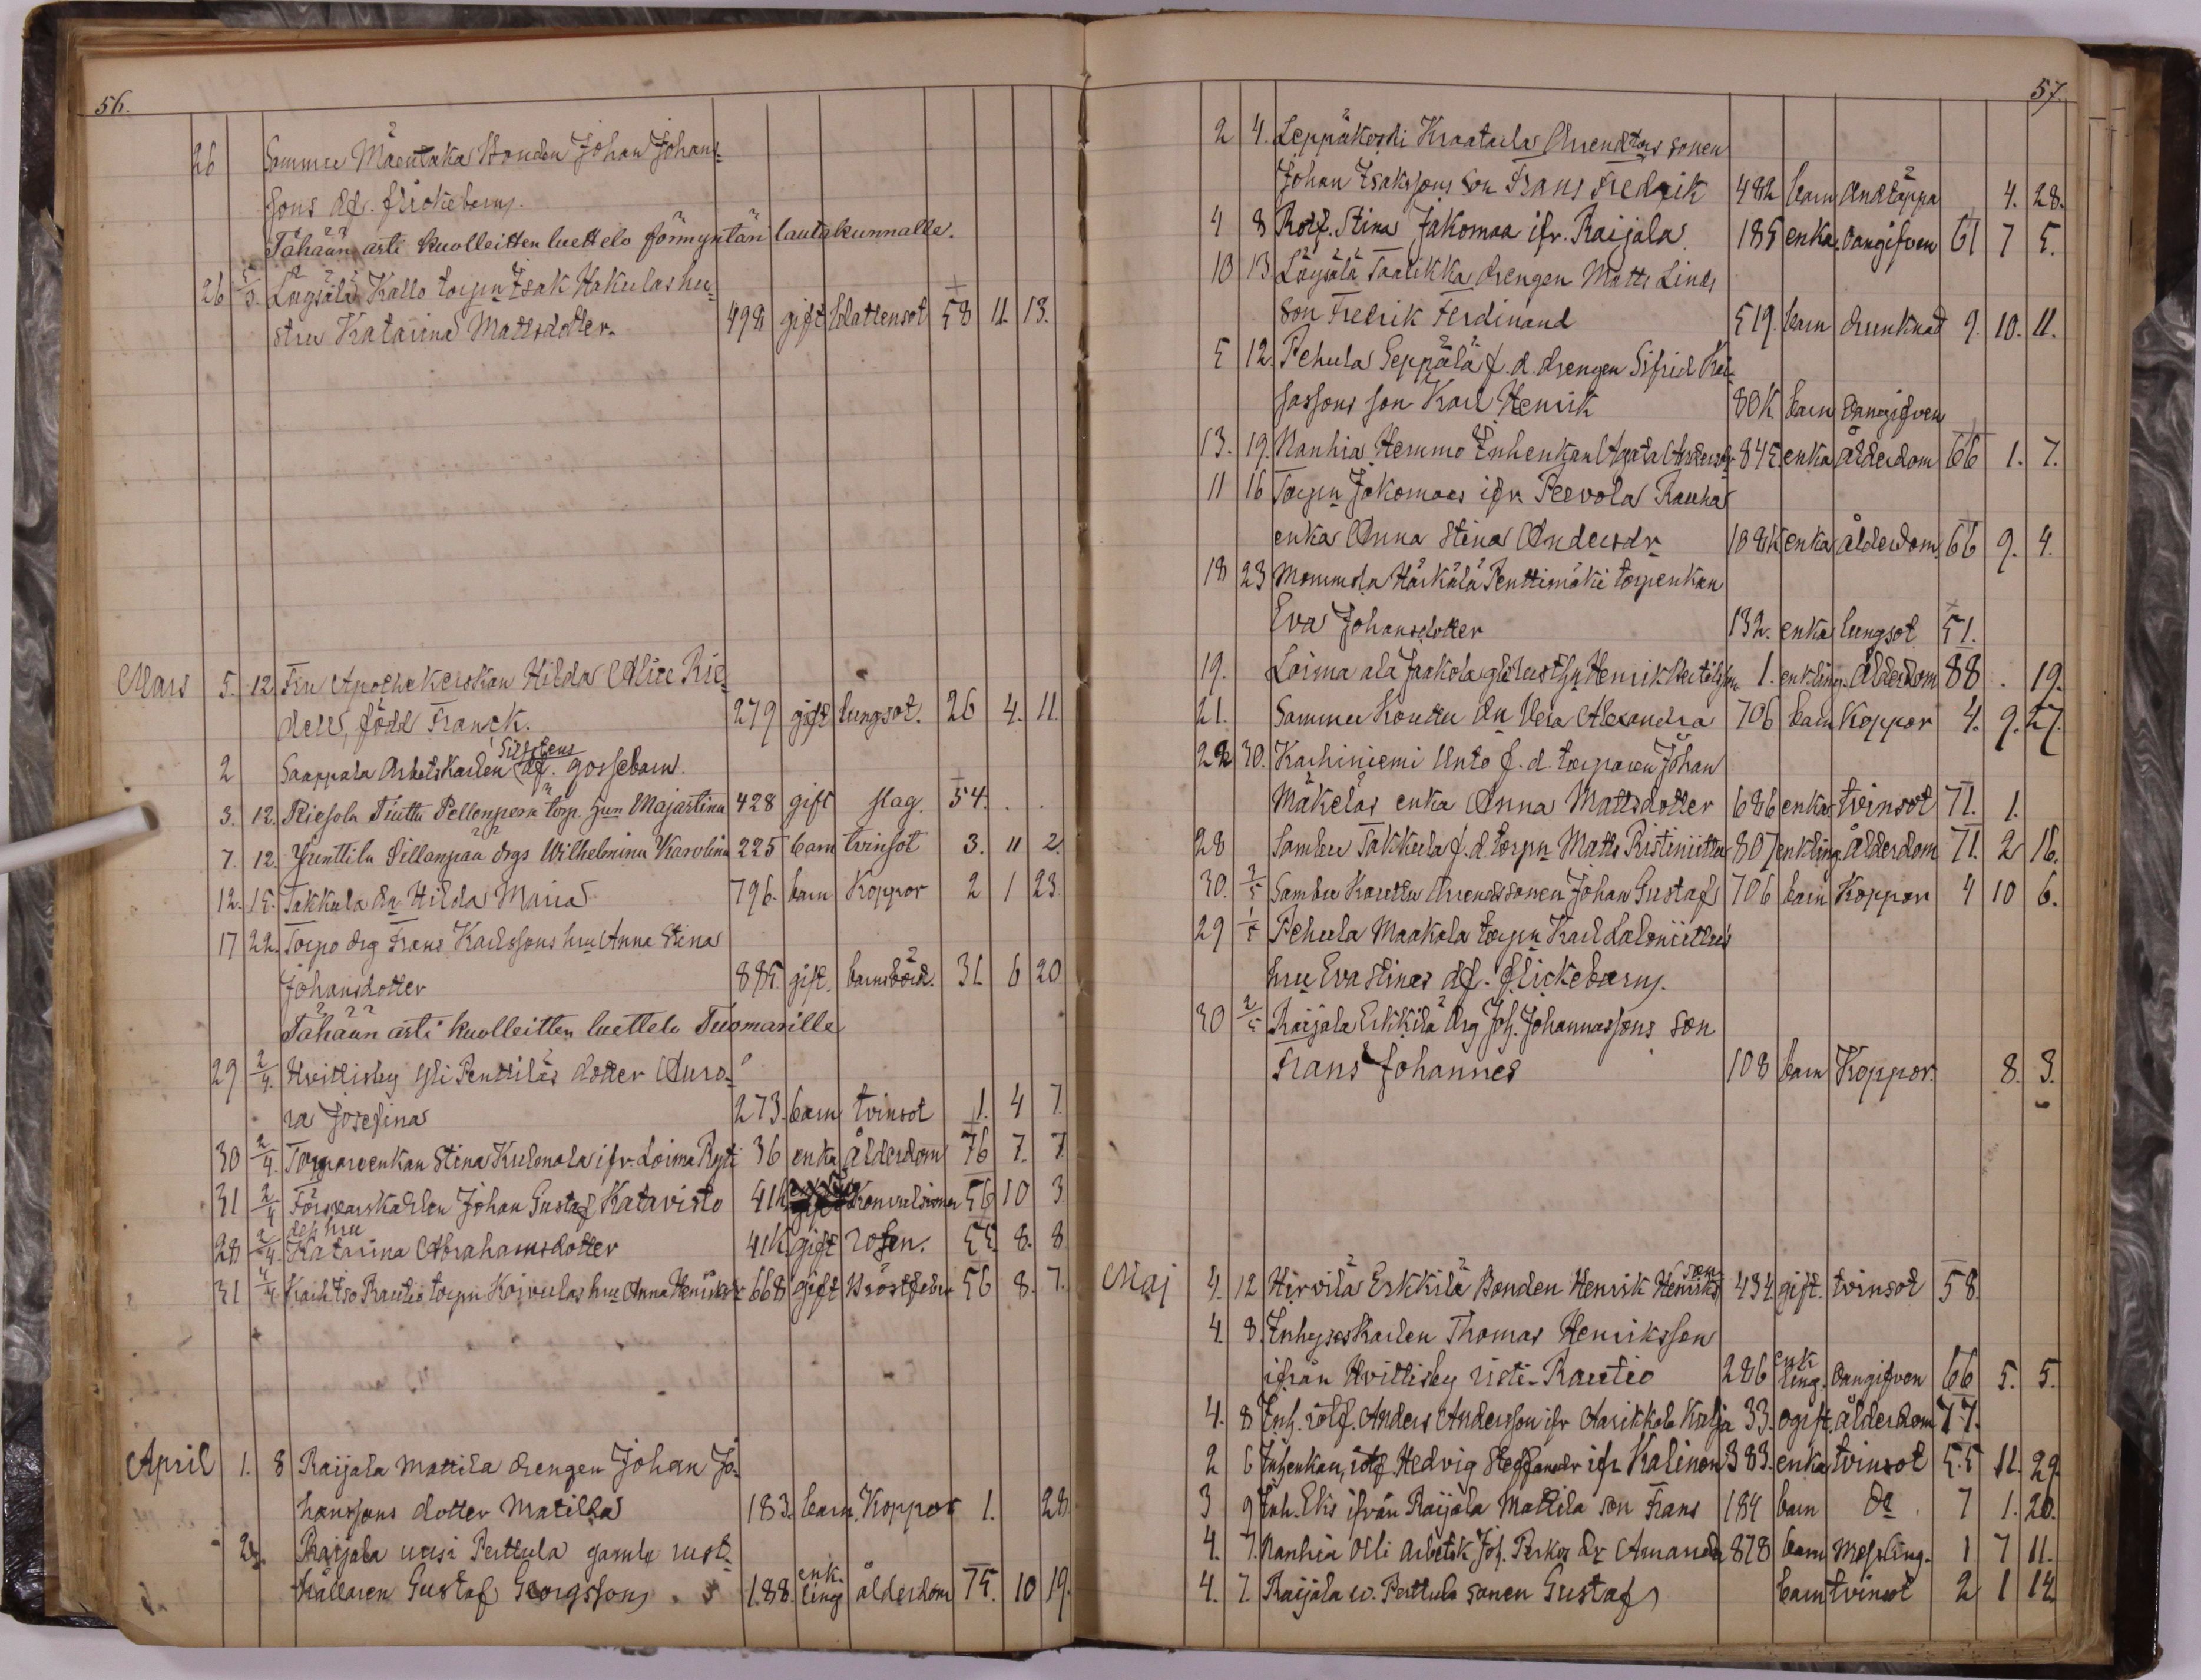 56.
26 Sammu Mäentaka Bonden Johan Johans-
sons df. flickebarn.
Tähään asti kuolleitten luettelo förmyntäri lautakunnalle.
26 5/3. Kallo torpn Isak Hakulas hu-
stru Katarina Mattsdotter. 498 gift Vattensot 58 11. 13.
Mars 5. 12. Fru Apothekerskan Hilda Alice
dell, född Franck. 279 gift lungsot. 26 4. 11.
2 Saappala Arbetskarlen df. gossebarn.
3. 12. Riesola Tiuttu Pellonperä torp. hru Majastina 428 gift slag. 54. . .
7. 12. Junttila Sillanpää drgs Wilhelmina Karolina 225 barn tvinsot 3. 11 2.
12. 15. Takkula dr Hilda Maria 796. barn Koppor 2 1 23
17 22. Torpo drg Frans Karlssons hru Anna Stina
Johansdotter 885. gift. barnsbörd. 31 6 20
Tähään asti kuolleitten luettelo Tuomarille
29 2/4. Hvittisby Yli Penttiläs dotter Auro-
ra Josefina 273. barn tvinsot 1. 4 7.
30 2/4. Torpareenkan Stina Kulmala ifr. Loima 36 enka ålderdom 76 7. 7
31 2/4 Försvarskarlen Johan Gustaf Katavisto 41h Konvulsioner 56 10 3
28 2/4. des hru
Katarina Abrahamsdotter 41h. gift rosen. 55. 8. 8
31 4/4 Rautio torpn Koivulas hru Anna Henriksdr 668 gift Bröstfeber 56 8. 7.
April 1. 8 Raijala Mattila drengen Johan Jo-
hanssons dotter Matilda 183. barn. Koppor 1. 28
Raijala uusi Perttula gamle rust-
hållaren Gustaf Georgsson 188. enk-
ling ålderdom 75. 10 19.
57.
2 4. Leppäkoski Kraatula Arendtors sonen
Johan Isakssons son Frans Fredrik 482 barn Andtäppa 4. 28.
4 8 Rotf. Stina Jakomaa ifr. Raijala 185 enka. Oangifven 61 7 5.
10 13 Löysälä Taalikka drengen Matts Linds
son Fredrik Ferdinand 519. barn drunknad 9. 10. 11.
5 12. Pehula Seppälä f. d. drengen Sifrid Kai-
sassons son Karl Henrik 80h barn Oangifven
13. 19. Nanhia Hemmo Inhenkan Agata Andersdr 845 enka ålderdom 66 1. 7.
11 16 Torpn Jakomaas ifrn Peevola Rauha
enka Anna Stina Andersdr 108h enka ålderdom. 66 9. 4.
18 23 Mommola Härkälä Penttimäki torpenkan
Eva Johansdotter 132. enka lungsot 51.
19. Loima ala Jaakola gle rusth Henrik 1. enkling. ålderdom 88 . 19.
21. Sammu Kouttu dr Vera Alexandra 706 barn Koppor 4. 9. 27.
22 30. Karhiniemi Unto f. d. torparen Johan
Mäkeläs enka Anna Mattsdotter 686 enka tvinsot 71. 1.
28 Sambu Takkula f. d. torpn Matts Ristiniittu 807 enkling. ålderdom 71. 2 16.
30. 2/5 Sambu Kouttu Arendssonen Johan Gustaf 706 barn Koppor 4 10 6.
29 1/5 Pehula Maakala torpn Karl
hru Eva Stinas df. flickebarn.
30 2/5 Raijala Erkkilä drg Joh. Johannessons son
Frans Johannes 108 barn Koppor. 8. 3.
Maj 4. 12 Hirvilä Erkkilä Bonden Henrik Henriksson 434. gift. tvinsot 58.
4. 8. Inhyseskarlen Thomas Henriksson
ifrån Hvittisby risti-Rautio 286 enk-
ling. Oangifven 66 5. 5.
4. 8 Inh. rotf. Anders Andersson ifr Karikkala 33. ogift. ålderdom 77.
2 6 Inhenkan, rotf. Hedvig Steffansdr ifr Kalinen 383. enka tvinsot 55 11. 29.
3 9 Inh. Elis ifrån Raijala Mattila son Frans 184 barn do 7 1. 20.
4. 7. Nanhia Olli arbetsk Joh. dr Amanda 878 barn Messling. 1 7 11.
4. 7. Raijala u. Perttula sonen Gustaf barn tvinsot 2 1 14.